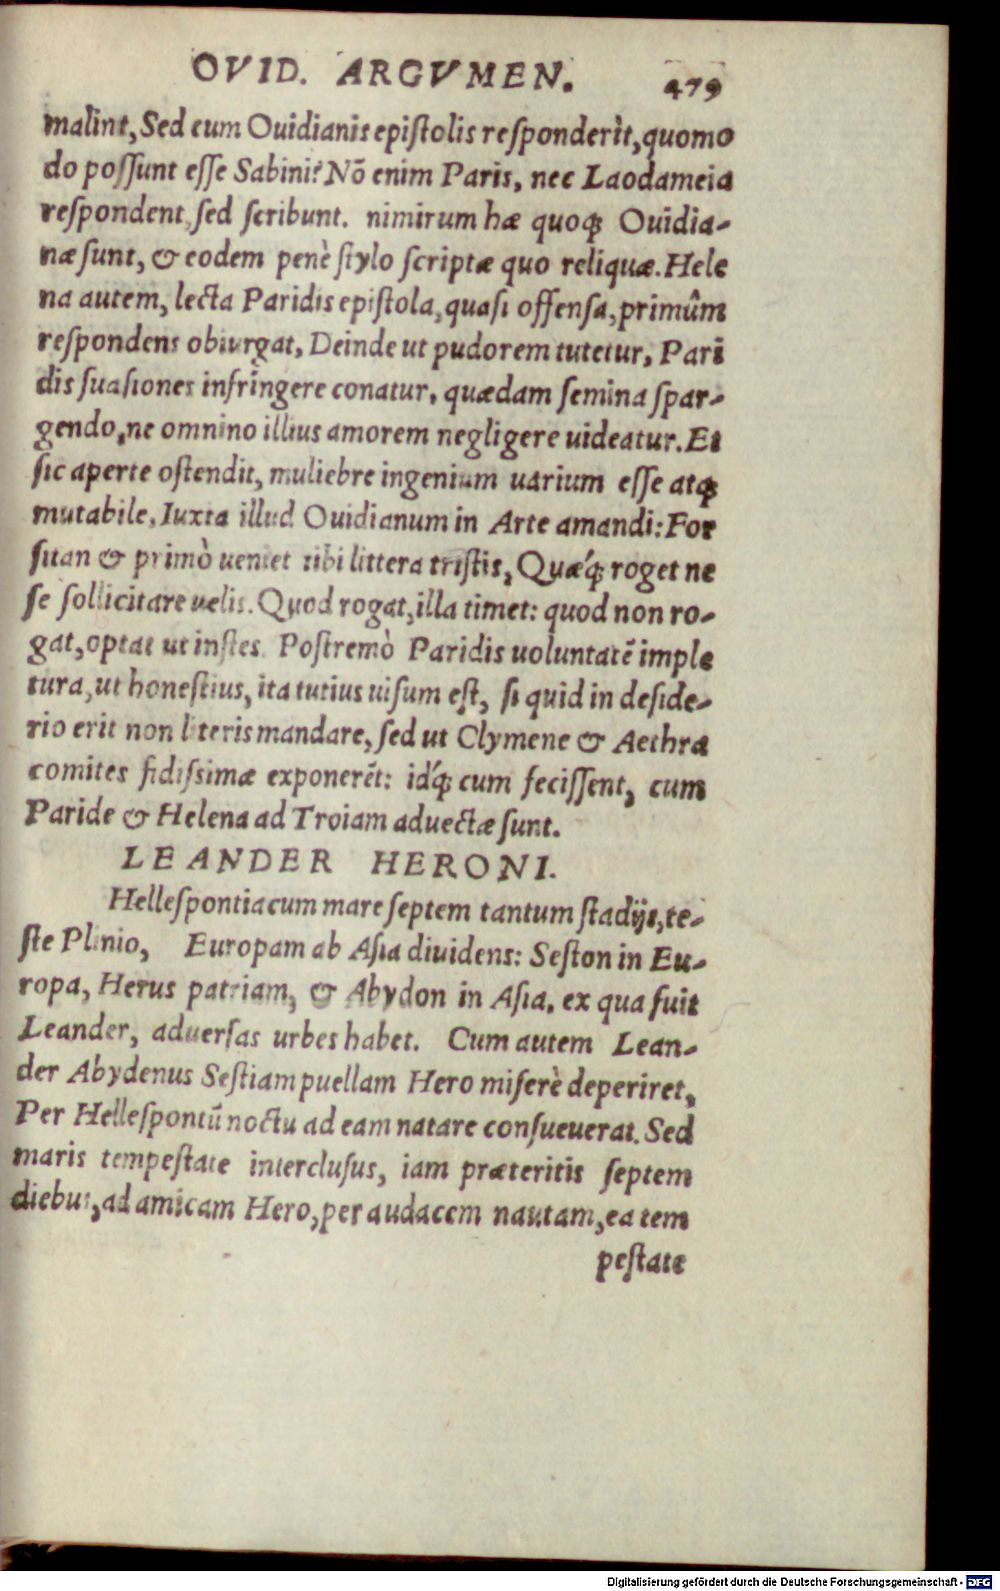 OVID. ARGVMEN. 479
malint, Sed cum Ouidianis epiſtolis reſponderit, quomo
do poſſunt eſſe Sabini? Nõ enim Paris, nec Laodameia
reſpondent, ſed ſcribunt. nimirum hæ quoq; Ouidia-
næ ſunt, & eodem penè ſtylo ſcriptæ quo reliquæ. Hele
na autem, lecta Paridis epiſtola, quaſi offenſa, primûm
reſpondens obiurgat, Deinde ut pudorem tutetur, Pari
dis ſuaſiones infringere conatur, quædam ſemina ſpar-
gendo, ne omnino illius amorem negligere uideatur. Et
ſic aperte oſtendit, muliebre ingenium uarium eſſe atq;
mutabile, Iuxta illud Ouidianum in Arte amandi: For
ſitan & primò ueniet tibi littera triſtis, Quæq́; roget ne
ſe ſollicitare uelis. Quod rogat, illa timet: quod non ro-
gat, optat ut inſtes. Poſtremò Paridis uoluntatẽ imple
tura, ut honeſtius, ita tutius uiſum eſt, ſi quid in deſide-
rio erit non literis mandare, ſed ut Clymene & Aethra
comites fidiſsimæ exponerẽt: idq́; cum feciſſent, cum
Paride & Helena ad Troiam aduectæ ſunt.
LEANDER HERONI.
Helleſpontiacum mare ſeptem tantum ſtadijs, te-
ſte Plinio, Europam ab Aſia diuidens: Seſton in Eu-
ropa, Herus patriam, & Abydon in Aſia, ex qua fuit
Leander, aduerſas urbes habet. Cum autem Lean-
der Abydenus Seſtiam puellam Hero miſerè deperiret,
Per Helleſpontũ noctu ad eam natare conſueuerat. Sed
maris tempeſtate interclusus, iam præteritis ſeptem
diebus, ad amicam Hero, per audacem nautam, ea tem
peſtate
Digitalisierung gefördert durch die Deutsche Forschungsgemeinschaft - DFG